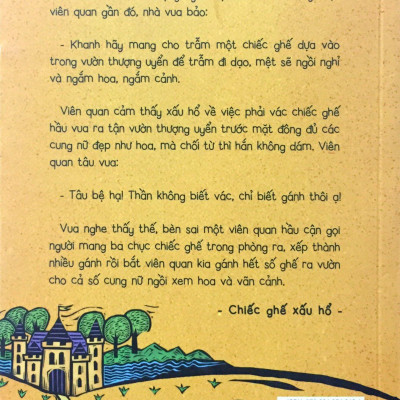 viên quan gần đó, nhà vua bảo:
- Khanh hãy mang cho trẫm một chiếc ghế dựa vào
trong vườn thượng uyển để trẫm đi dạo, mệt sẽ ngồi nghỉ
và ngắm hoa, ngắm cảnh.
Viên quan cảm thấy xấu hổ về việc phải vác chiếc ghế
hầu vua ra tận vườn thượng uyển trước mặt đông đủ các
cung nữ đẹp như hoa, mà chối từ thì hắn không dám. Viên
quan tâu vua:
- Tâu bệ hạ! Thần không biết vác, chỉ biết gánh thôi ạ!
Vua nghe thấy thế, bèn sai một viên quan hầu cận gọi
người mang ba chục chiếc ghế trong phòng ra, xếp thành
nhiều gánh rồi bắt viên quan kia gánh hết số ghế ra vườn
cho cả số cung nữ ngồi xem hoa và vãn cảnh.
- Chiếc ghế xấu hổ -